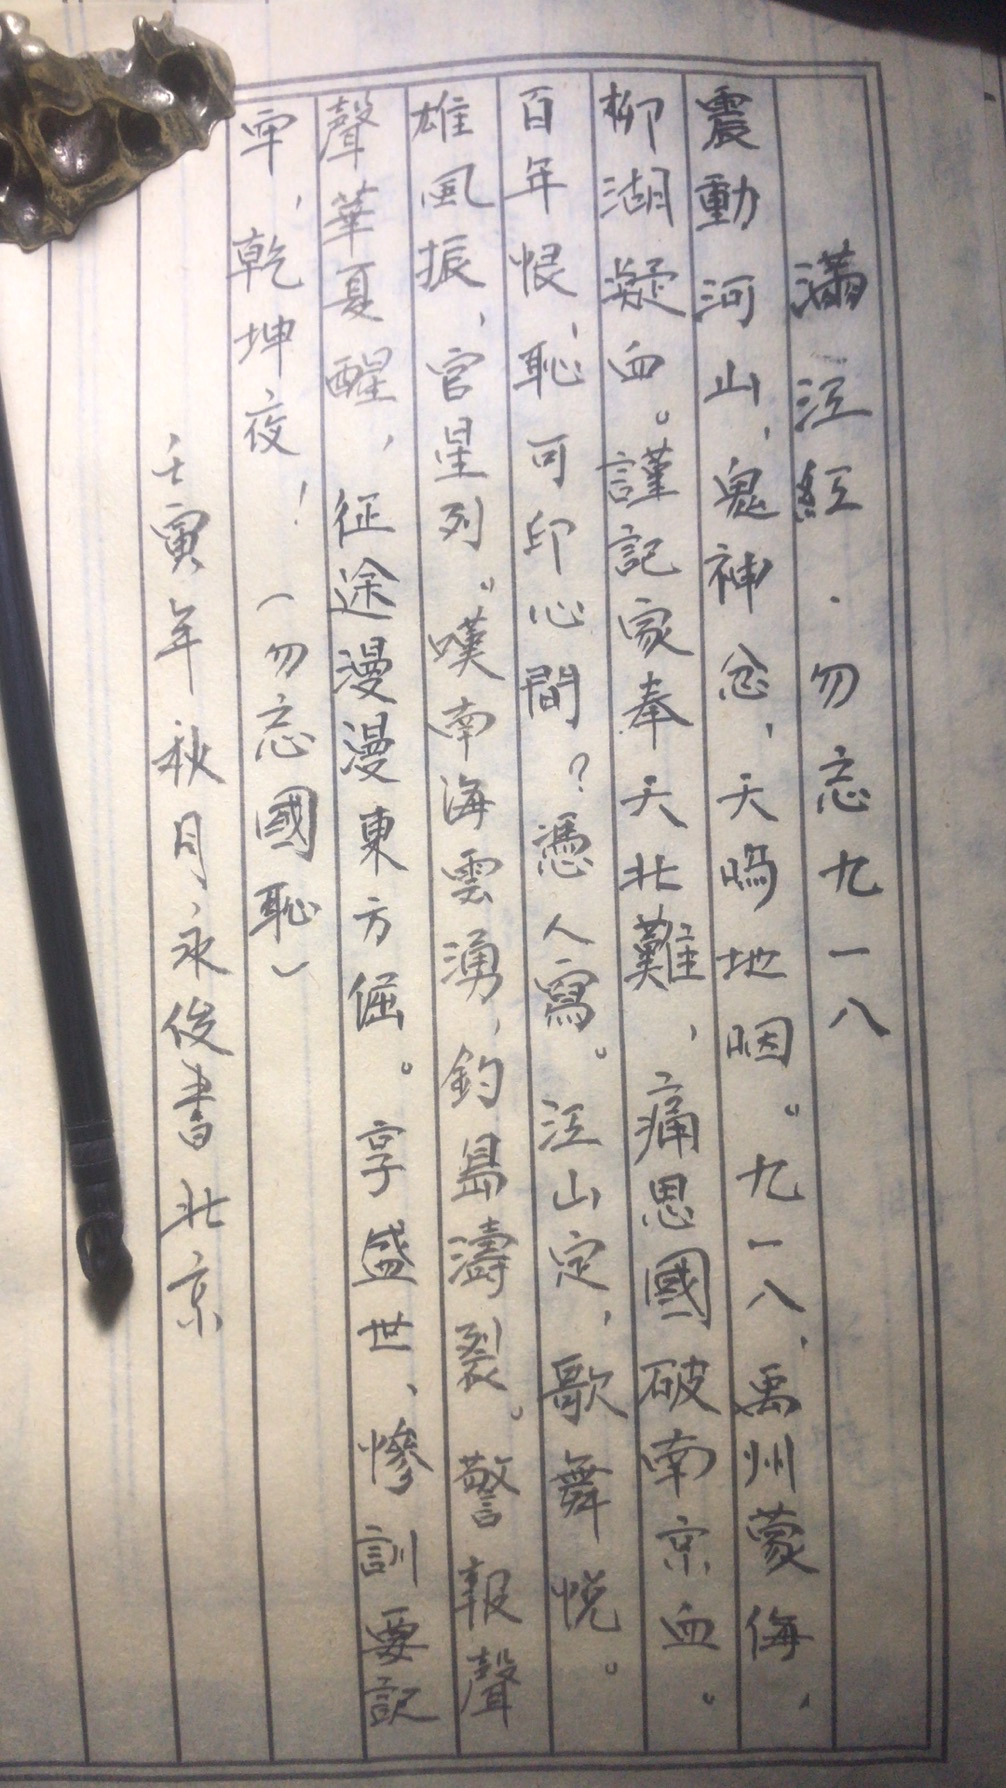 滿江紅·勿忘九一八
震動河山，鬼神忿，天嗚地咽。九一八，禹州蒙侮，
柳湖凝血。謹記家奉天北難，痛思國破南京血。
百年恨，恥可印心間？憑人寫。江山定，歌舞悅。
雄風振，官星列。嘆南海雲湧，釣島濤裂。警報聲
聲華夏醒，征途漫漫東方倔。享盛世、慘訓要記
牢，乾坤夜！（勿忘國恥）
壬寅年秋月永俊書北京